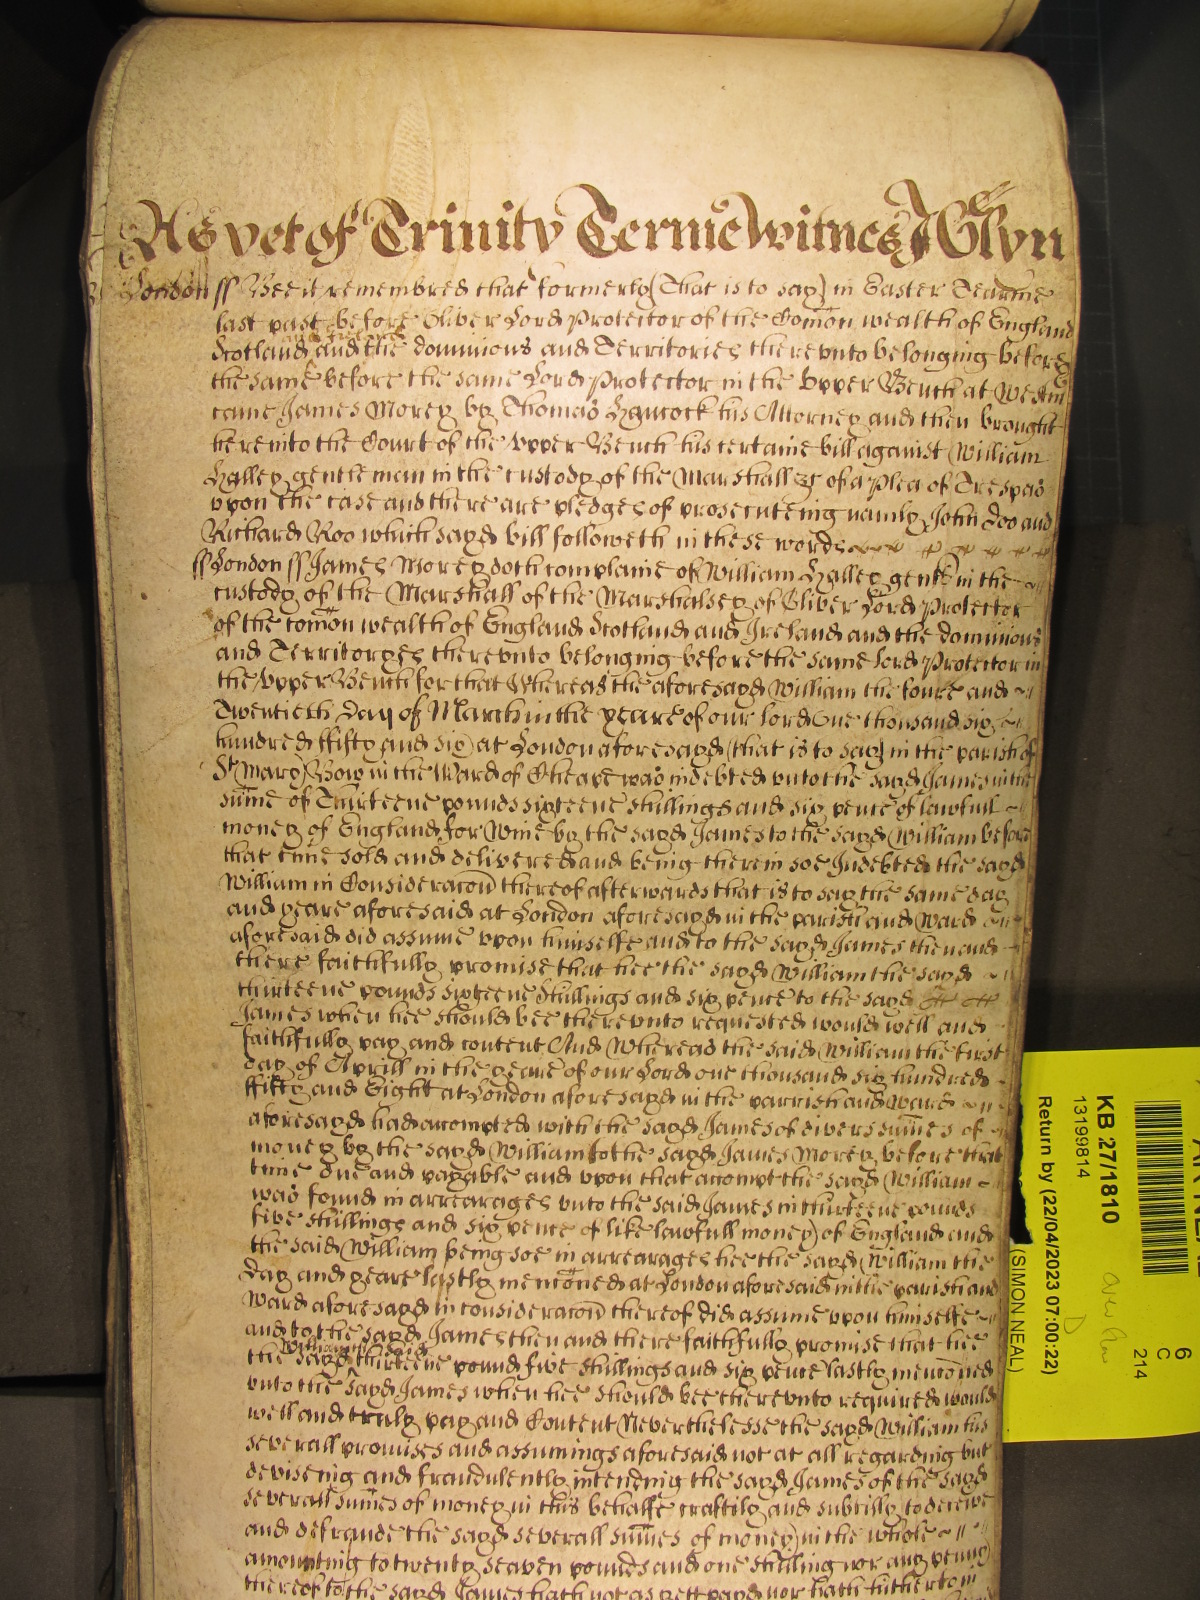 As yet of Trinity Terme Witnes J Glyn
London ss Bee it remembred that formerly (That is to say) in Easter Tearme
last past before Oliver Lord Protector of the Comon wealth of England
Scotland and the dominions and Territories therevnto belonging before
the same before the same Lord Protector in the vpper Bench at Westm
came James Morey by Thomas Haycock his Attorney and then brought
here into the Court of the vpper Bench his certaine bill against William
Halley gentleman in the custody of the Marshall &c of a Plea of Trespas
vpon the case and there are pledges of prosecuteing namly John Doo and
Richard Roo which sayd bill followeth in these words
ss London ss James Morey doth complaine of William Halley gent in the
custody of the Marshall of the Marshalsey of Oliver Lord Protector
of the comon wealth of England Scotland and Ireland and the dominions
and Territoryes therevnto belonging before the same lord Protector in
the vpper Bench for that Whereas the aforesayd William the foure and
Twentieth day of March in the yeare of our lord One thousand six
hundred ffifty and six at London aforesayd (that is to say) in the parish of
St Mary Bow in the Ward of Cheape was indebted vnto the sayd James in the
sume of Thirteene pounds sixteene shillings and six pence of lawfull
money of England for Wine by the sayd James to the sayd William before
that time sold and delivered and being therein soe Indebted the sayd
William in Consideracon thereof afterwards that is to say the same day
and yeare aforesaid at London aforesayd in the parish and Ward
aforesaid did assume vpon himselfe and to the sayd James then and
there faithfully promise that hee the sayd William the sayd
thirteene pounds sixteene Shillings and six pence to the sayd
James when hee should bee therevnto requested would well and
faithfully pay and content And Whereas the said William the first
day of Aprill in the yeare of our Lord one thousand six hundred
ffifty and Eight at London aforesayd in the parrish and Ward
aforesayd had accompted with the sayd James of divers sumes of
money by the sayd William to the sayd James Morey before that
time due and payable and vpon that accompt the sayd William
was found in arrearages vnto the said James in thirteene pounds
five shillings and six pence of like lawfull money of England and
the said William being soe in arrearages hee the sayd William the
day and yeare lastly menconed at London aforesaid in the parish and
Ward aforesayd in consideracon thereof did assume vpon himselfe
and to the sayd James then and there faithfully promise that hee
William the said
the sayd thirteene pound five shillings and six pence lastly menconed
vnto the sayd James when hee should bee therevnto required would
well and truly pay and Content Neverthelesse the sayd William his
severall promises and assumings aforesaid not at all regarding but
deviseing and fraudulently intending the sayd James of the sayd
severall sumes of money in this behalfe craftily and subtilly to deceive
and defraude the sayd severall sumes of money in the whole
amounting to twenty seaven pounds and one shilling nor any penny
thereof to the sayd James hath not as yett payd nor hath hitherto in
KB 27/1810
13199814
Return by (22/04/2023 07:00:22)
(SIMON NEAL)
6
C
214